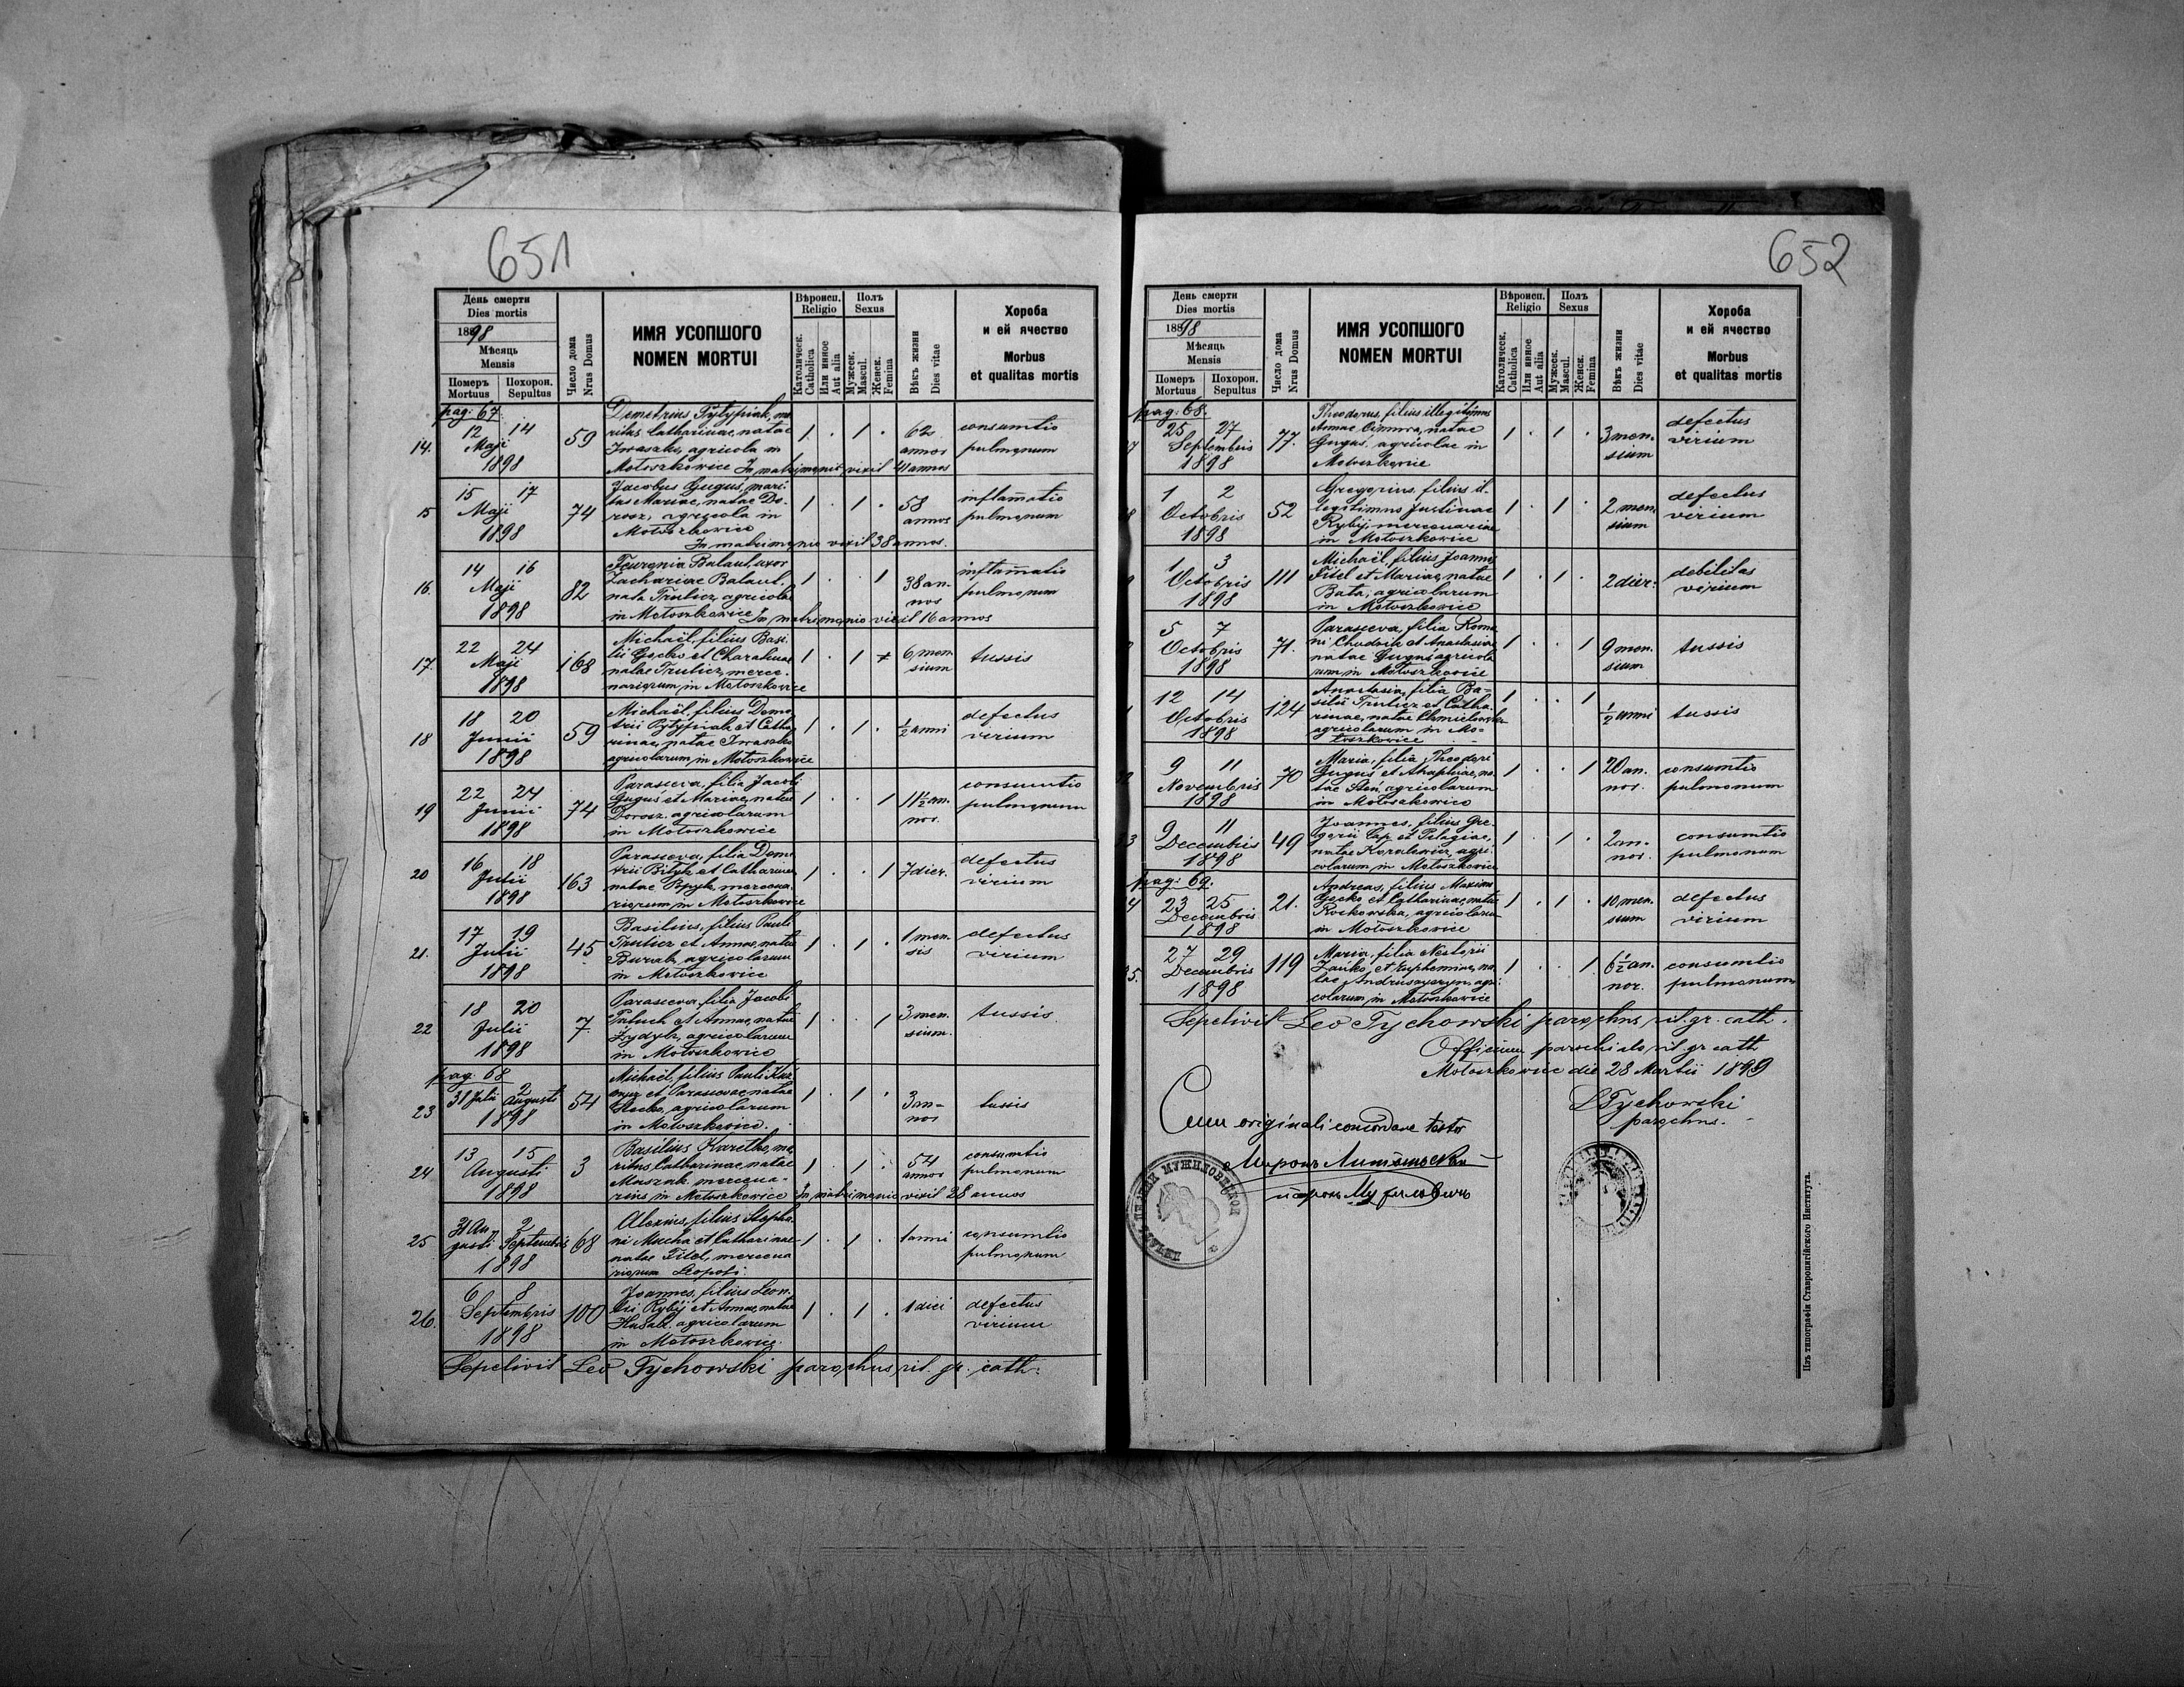 651
День смерти
Dies mortis
1898
Мѣсяць
Mensis
Померъ
Mortuus
Похорон.
Sepultus
Число дома
Nrus Domus
ИМЯ УСОПШОГО
NOMEN MORTUI
Вѣроисп.
Religio
Католическ.
Catholica
Или инное
Aut alia
Полъ
Sexus
Мужеск.
Mascul.
Женск.
Femina
Вѣкъ жизни
Dies vitae
Хороба
и ей ячество
Morbus
et qualitas mortis
pag: 67.
14. 12 14 Maji 1898 59
Demetrius Pytypiak, ma
ritus Catharinae, natae
Iwaszko, agricola in
Motoszkowice In matrimonio vixit 41 annos
1 . 1 . 62 annos consumtio pulmonum
15 15 17 Maji 1898 74
Jacobus Guguś, mari-
tus Mariae, natae Do-
rosz, agricola in
Motoszkowice
In matrimonio vixit 38 annos.
1 . 1 . 58 annos inflamatio pulmonum
16. 14 16 Maji 1898 82
Balaut, uxor
Zachariae Balaut,
nata Trulicz, agricolae
in Motoszkowice In matrimonio vixit 16 annos
1 . . 1 38 an- nos inflamatio pulmonum
17. 22 24 Maji 1898 168
Michaël, filius Basi-
lii Gocko et
natae Trulicz, merce-
nariorum, in Motoszkowice
1 . 1 6 men sium tussis
18 18 20 Junii 1898 59
Michaël, filius Deme
trii Pytypiak et Catha
rinae, natae Iwaszko
agricolarum, in Motoszkowice
1 . 1 . ½ anni defectus virium
19 22 24 Junii 1898 74
Parasceva, filia Jacobi
Guguś et Mariae, natae
Dorosz, agricolarum
in Motoszkowice
1 . . 1 11½ an- nos. consumtio pulmonum
20 16 18 Julii 1898 163
Parasceva, filia Deme
trii et Catharinae
natae mercena
riorum, in Motoszkowice
1 . . 1 7 dier. defectus virium
21. 17 19 Julii 1898 45
Basilius, filius Pauli
Trulicz et Annae, natae
Burak, agricolarum
in Motoszkowice
1 . 1 . 1 men- sis defectus virium
22 18 20 Julii 1898 7
Parasceva, filia Jacobi
et Annae, natae
agricolarum
in Motoszkowice
1 . . 1 3 men- sium. tussis
pag: 68
23 31 Julii 2 Augusti 1898 54
Michaël, filius Pauli
et Parascevae, natae
agricolarum
in Motoszkowice.
1 . 1 . 3 an- nos tussis
24 13 15 Augusti 1898 3
Basilius ma
ritus Catharinae, natae
mercena-
rius in Motoszkowice In matrimonio vixit 28 annos
1 . 1 . 54 annos consumtio pulmonum
25 31 Au- gusti 2 Septembris 1898 68
Alexius, filius Stepha
ni Mucha et Catharinae
natae Fitel, mercena
riorum Leopoli.
1 . 1 . 1 anni consumtio pulmonum
26. 6 8 Septembris 1898 100
Joannes, filius Leon-
tii Rybij et Annae, natae
agricolarum
in Motoszkowice.
1 . 1 . 1 diei defectus virium
Sepelivit Leo Tychowski parochus rit. gr. cath.
652
День смерти
Dies mortis
1898
Мѣсяць
Mensis
Померъ
Mortuus
Похорон.
Sepultus
Число дома
Nrus Domus
ИМЯ УСОПШОГО
NOMEN MORTUI
Вѣроисп.
Religio
Католическ.
Catholica
Или инное
Aut alia
Полъ
Sexus
Мужеск.
Mascul.
Женск.
Femina
Вѣкъ жизни
Dies vitae
Хороба
и ей ячество
Morbus
et qualitas mortis
pag: 68.
7 25 27 Septembris 1898 77.
Theodorus, filius illegitimus
Annae natae
Guguś, agricolae in
Motoszkowice
1 . 1 . 3 men- sium defectus virium
8 1 2 Octobris 1898 52
Gregorius, filius il-
legitimus Justinae
Rybij, mercenariae
in Motoszkowice
1 . 1 . 2 men- sium defectus virium
1 3 Octobris 1898 111
Michaël, filius Joannis
Fitel et Mariae, natae
Bata, agricolarum
in Motoszkowice
1 . 1 . 2 dier. debilitas virium
5 7 Octobris 1898 71.
Parasceva, filia Roma
ni et Anastasiae
natae Guguś agricola
rum, in Motoszkowice
1 . . 1 9 men- sium tussis
12 14 Octobris 1898 124
Anastasia, filia Ba-
silii Trulicz et Catha-
rinae, natae Chmielowska
agricolarum in Mo-
toszkowice
1 . . 1 ½ anni tussis
9 11 Novembris 1898 70
Maria, filia Theodori
Guguś et Ahaphiae, na
tae agricolarum
in Motoszkowice
1 . . 1 20 an- nos. consumtio pulmonum
3 9 11 Decembris 1898 49
Joannes, filius Gre-
gorii Cap et Pelagiae,
natae Karalewicz, agri-
colarum in Motoszkowice
1 . 1 . 2 an- nos. consumtio pulmonum
pag: 69.
4 23 25 Decembris 1898 21.
Andreas, filius Maximi
Gocko et Catharinae, natae
Roskowska, agricolarum
in Motoszkowice
1 . 1 . 10 men- sium defectus virium
5. 27 29 Decembris 1898 119
Maria, filia Nestorii
et Euphemiae, na
tae Andruszyszyn, agri-
colarum, in Motoszkowice
1 . . 1 6½ an- nor. consumtio pulmonum
Sepelivit Leo Tychowski parochus rit. gr. cath.
Officium parochiale rit. gr. cath
Motoszkowice die 28 Martii 1899
LTychowski
parochus.
Cum originali concordare testor
Миронъ
Изъ типографіи Ставропигійского Института